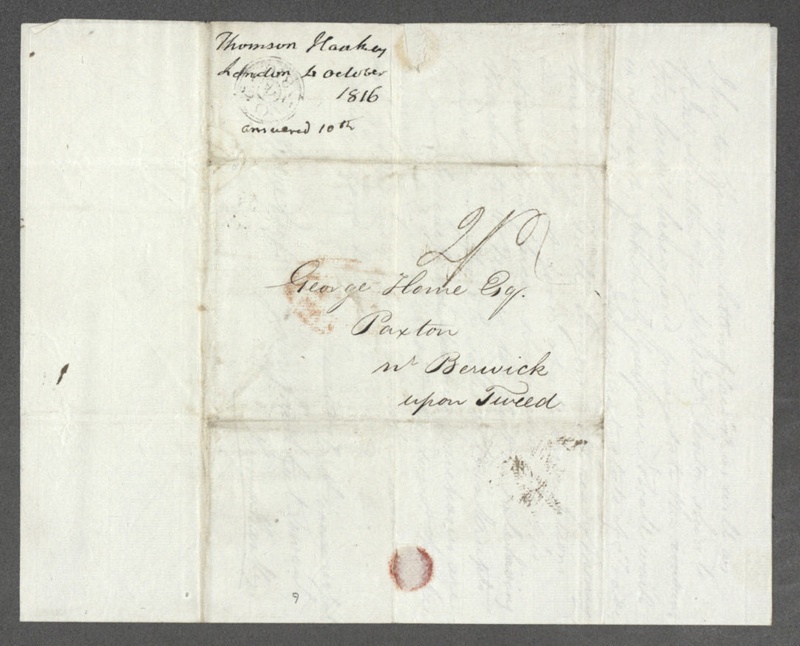 Thomson Hankey
London 4 October
1816
answered 10th
2/2
George Home Esq.
Paxton
nr Berwick
upon Tweed
9